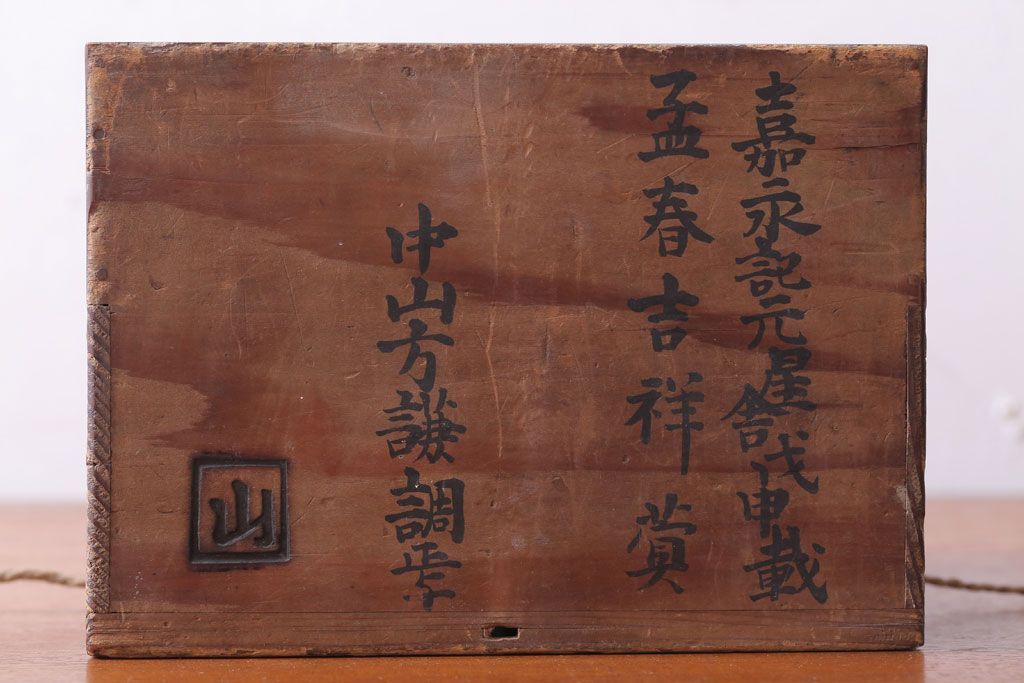 嘉永記元星舎戊申載
孟春吉祥賞
中山方謙調
山